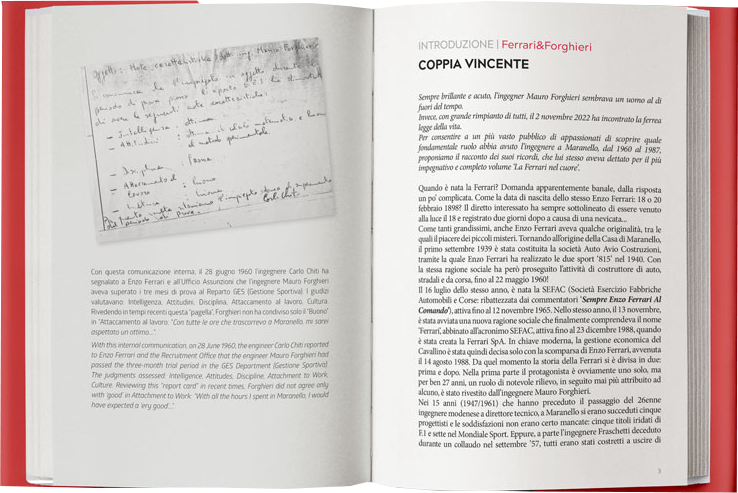 Oggetto: Note caratteristiche dell'ing. Mauro Forghieri
Si comunica che l'impiegato in oggetto durante il
periodo di prova presso il reparto G.E.S. ha dimostrato
di avere le seguenti note caratteristiche:
- Intelligenza: ottima
- Attitudini: ottima il calcolo matematico e buona
al metodo sperimentale.
- Disciplina: buona
- Attaccamento al
lavoro: buono
- Cultura: buona
Carlo Chiti
Con questa comunicazione interna, il 28 giugno 1960 l'ingegnere Carlo Chiti ha
segnalato a Enzo Ferrari e all'Ufficio Assunzioni che l'ingegnere Mauro Forghieri
aveva superato i tre mesi di prova al Reparto GES (Gestione Sportiva). I giudizi
valutavano: Intelligenza, Attitudini, Disciplina, Attaccamento al lavoro, Cultura.
Rivedendo in tempi recenti questa "pagella", Forghieri non ha condiviso solo il "Buono"
in "Attaccamento al lavoro: "Con tutte le ore che trascorrevo a Maranello, mi sarei
aspettato un ottimo...".
With this internal communication, on 28 June 1960, the engineer Carlo Chiti reported
to Enzo Ferrari and the Recruitment Office that the engineer Mauro Forghieri had
passed the three-month trial period in the GES Department (Gestione Sportiva).
The judgments assessed: Intelligence, Attitudes, Discipline, Attachment to Work,
Culture. Reviewing this "report card" in recent times, Forghieri did not agree only
with 'good' in Attachment to Work: "With all the hours I spent in Maranello, I would
have expected a 'ery good'...".
INTRODUZIONE | Ferrari&Forghieri
COPPIA VINCENTE
Sempre brillante e acuto, l'ingegner Mauro Forghieri sembrava un uomo al di
fuori del tempo.
Invece, con grande rimpianto di tutti, il 2 novembre 2022 ha incontrato la ferrea
legge della vita.
Per consentire a un più vasto pubblico di appassionati di scoprire quale
fondamentale ruolo abbia avuto l'ingegnere a Maranello, dal 1960 al 1987,
proponiamo il racconto dei suoi ricordi, che lui stesso aveva dettato per il più
impegnativo e completo volume 'La Ferrari nel cuore'.
Quando è nata la Ferrari? Domanda apparentemente banale, dalla risposta
un po' complicata. Come la data di nascita dello stesso Enzo Ferrari: 18 o 20
febbraio 1898? Il diretto interessato ha sempre sottolineato di essere venuto
alla luce il 18 e registrato due giorni dopo a causa di una nevicata...
Come tanti grandissimi, anche Enzo Ferrari aveva qualche originalità, tra le
quali il piacere dei piccoli misteri. Tornando all'origine della Casa di Maranello,
il primo settembre 1939 è stata costituita la società Auto Avio Costruzioni,
tramite la quale Enzo Ferrari ha realizzato le due sport '815' nel 1940. Con
la stessa ragione sociale ha però proseguito l'attività di costruttore di auto,
stradali e da corsa, fino al 22 maggio 1960!
Il 16 luglio dello stesso anno, è nata la SEFAC (Società Esercizio Fabbriche
Automobili e Corse: ribattezzata dai commentatori 'Sempre Enzo Ferrari Al
Comando'), attiva fino al 12 novembre 1965. Nello stesso anno, il 13 novembre,
è stata avviata una nuova ragione sociale che finalmente comprendeva il nome
'Ferrari', abbinato all'acronimo SEFAC, attiva fino al 23 dicembre 1988, quando
è stata creata la Ferrari SpA. In chiave moderna, la gestione economica del
Cavallino è stata quindi decisa solo con la scomparsa di Enzo Ferrari, avvenuta
il 14 agosto 1988. Da quel momento la storia della Ferrari si è divisa in due:
prima e dopo. Nella prima parte il protagonista è ovviamente uno solo, ma
per ben 27 anni, un ruolo di notevole rilievo, in seguito mai più attribuito ad
alcuno, è stato rivestito dall'ingegnere Mauro Forghieri.
Nei 15 anni (1947/1961) che hanno preceduto il passaggio del 26enne
ingegnere modenese a direttore tecnico, a Maranello si erano succeduti cinque
progettisti e le soddisfazioni non erano certo mancate: cinque titoli iridati di
F.1 e sette nel Mondiale Sport. Eppure, a parte l'ingegnere Fraschetti deceduto
durante un collaudo nel settembre '57, tutti erano stati costretti a uscire di
3